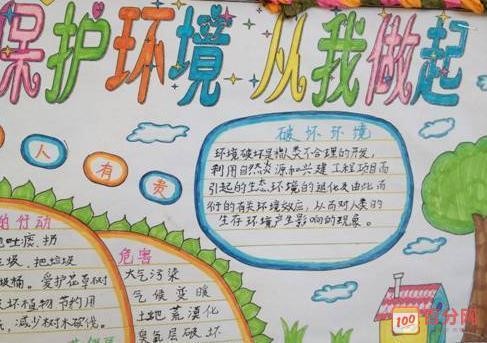 保护环境 从我做起
人 有 责
破坏环境
环境破坏是 人类不合理的开发,
利用自然资源和兴建工程项目而
引起的生态环境的退化及由此而
衍的有关环境效应,从而对人类的
生存环境产生影响的现象。
的行动
吐痰,扔
圾、把垃圾
圾桶。爱护花草树
坏植物 节约用
减少树木砍伐。
危害
大气污染
气候变暖
土地荒漠化
臭氧层破坏
100 百分网